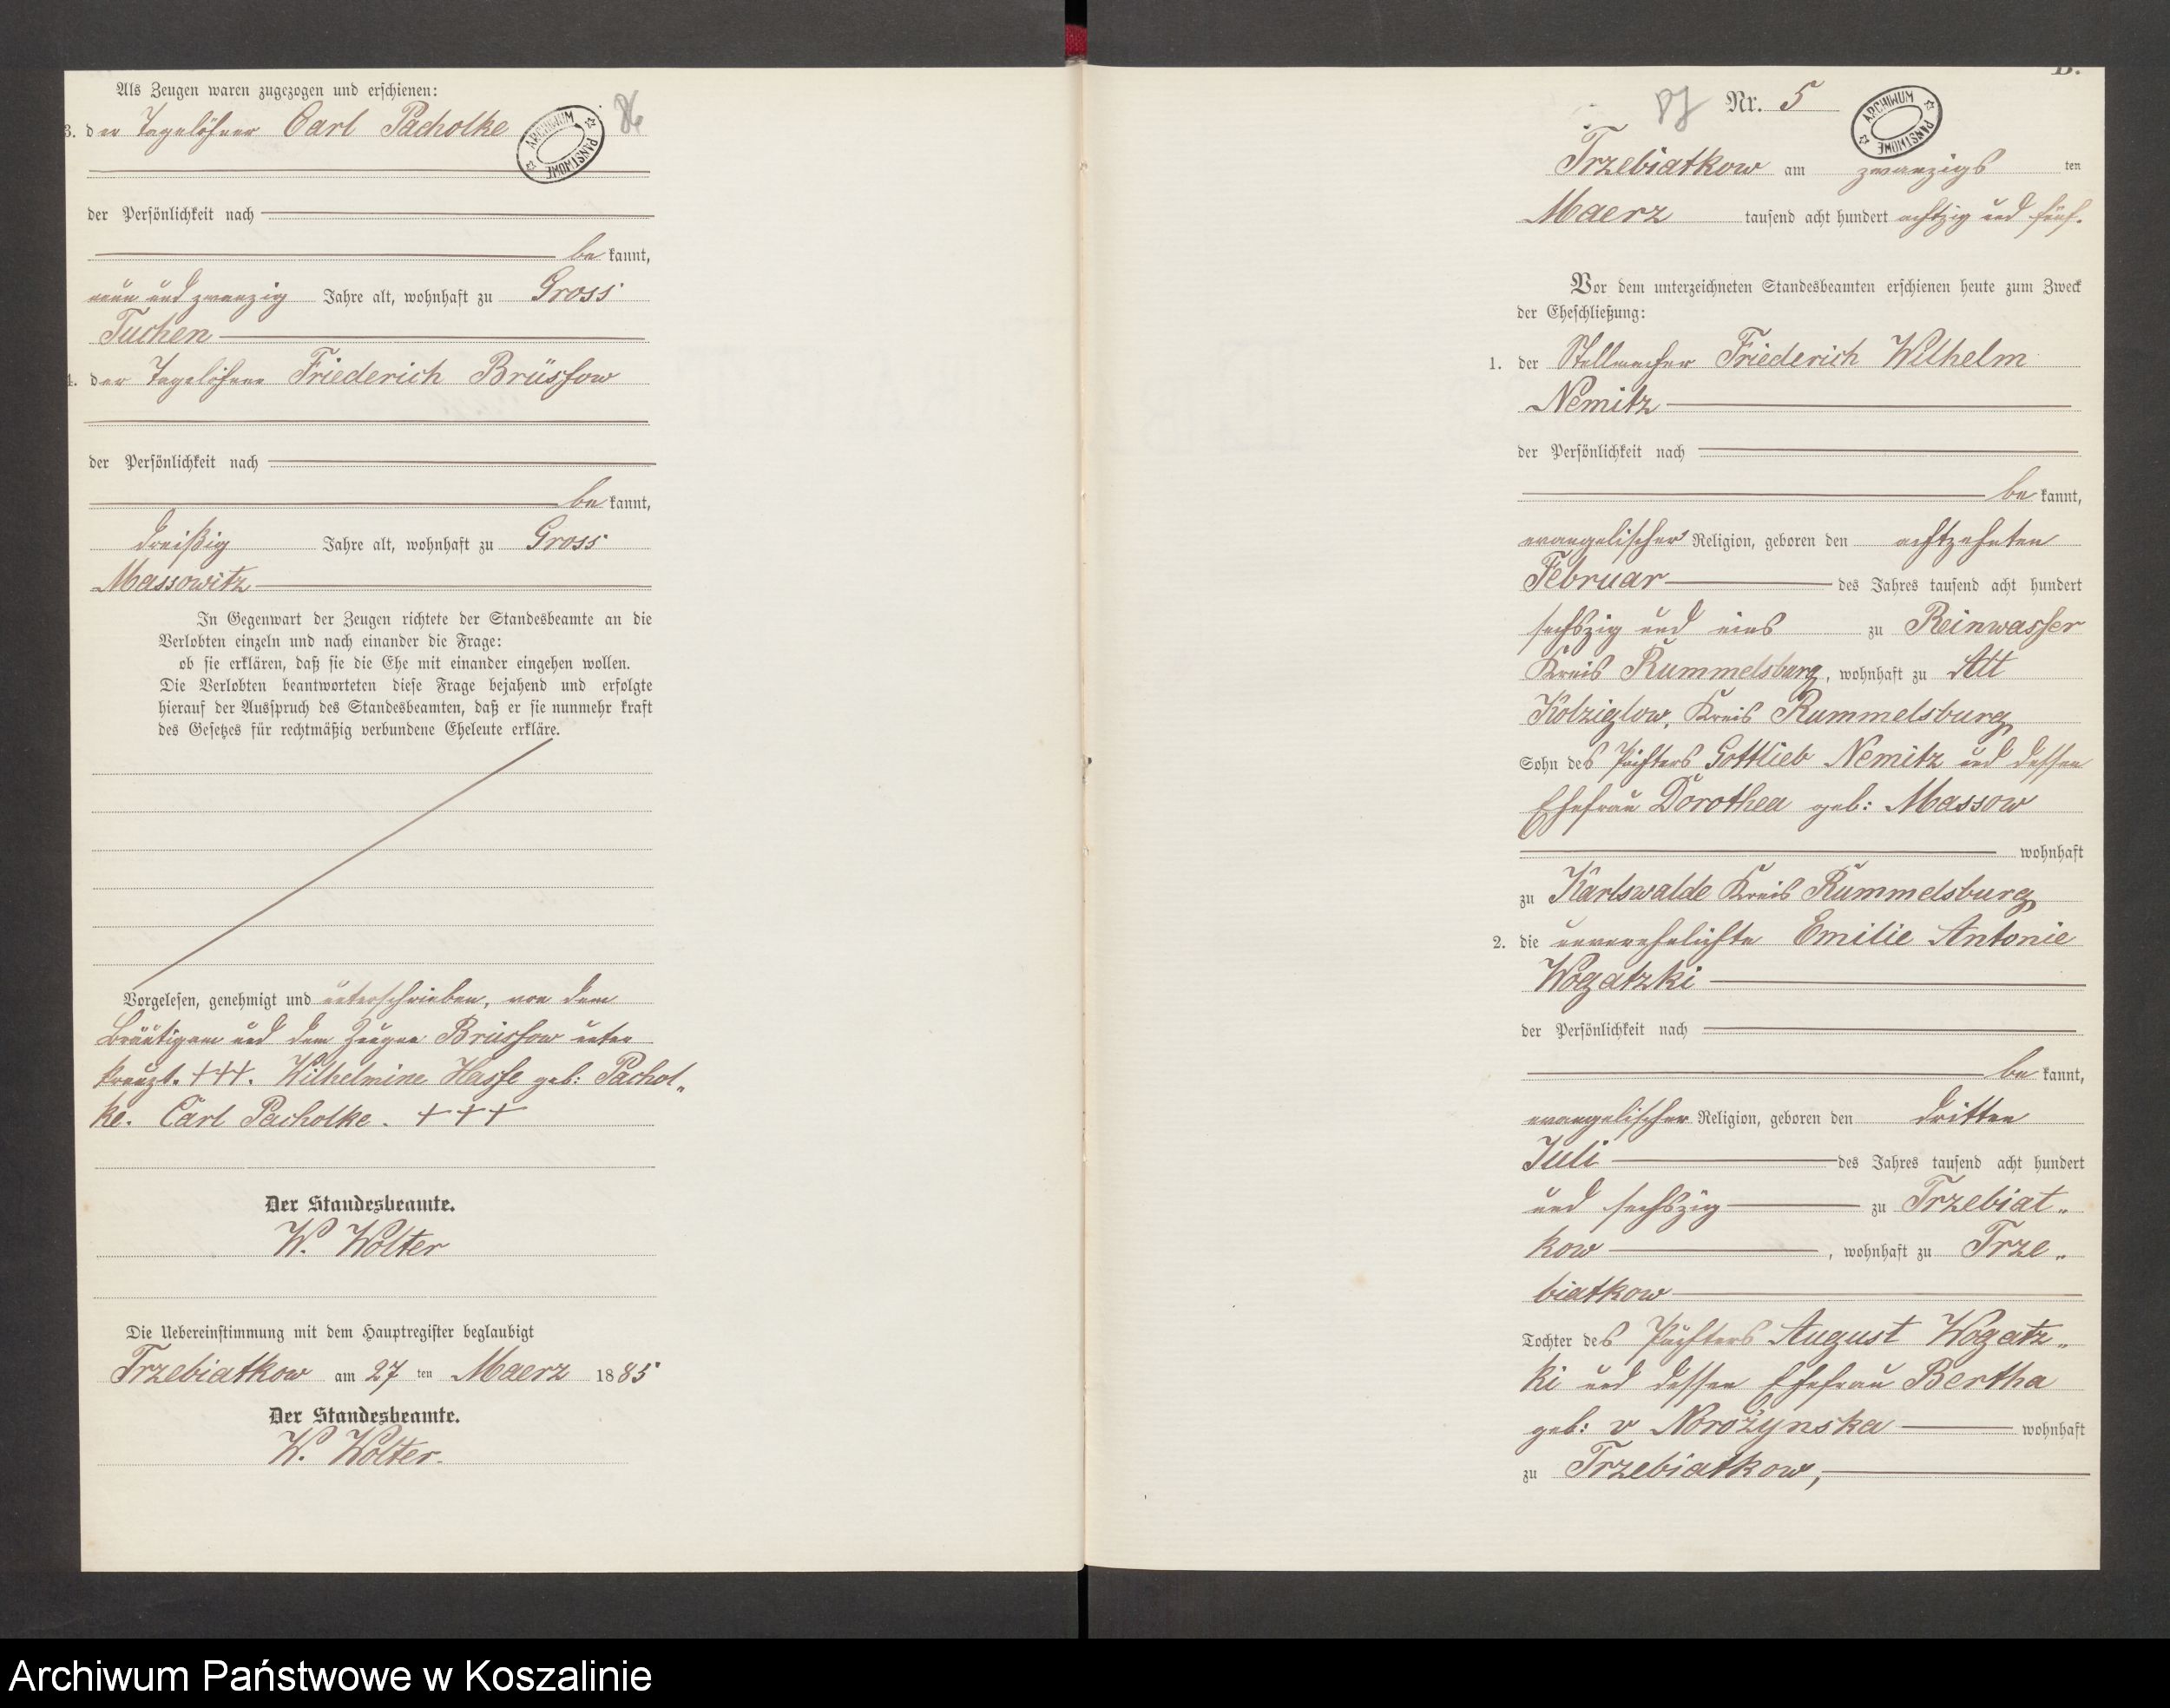 Als Zeugen waren zugezogen und erschienen:
3. der Tagelöhner Carl Pacholke
86
ARCHIWUM PAŃSTWOWE
der Persönlichkeit nach
be kannt,
neun und zwanzig Jahre alt, wohnhaft zu Gross
Tuchen
4. der Tagelöhner Friederich Brüssow
der Persönlichkeit nach
be kannt,
dreißig Jahre alt, wohnhaft zu Gross
Massowitz
In Gegenwart der Zeugen richtete der Standesbeamte an die
Verlobten einzeln und nach einander die Frage:
ob sie erklären, daß sie die Ehe mit einander eingehen wollen.
Die Verlobten beantworteten diese Frage bejahend und erfolgte
hierauf der Ausspruch des Standesbeamten, daß er sie nunmehr kraft
des Gesetzes für rechtmäßig verbundene Eheleute erkläre.
Vorgelesen, genehmigt und unterschrieben, von dem
Bräutigam und dem Zeugen Brüssow unter
kreuzt. +++. Wilhelmine Hasse geb: Pachol„
ke. Carl Pacholke. +++
Der Standesbeamte.
W. Wolter
Die Uebereinstimmung mit dem Hauptregister beglaubigt
Trzebiatkow am 27 ten Maerz 1885
Der Standesbeamte.
W. Wolter.
B.
87 Nr. 5
ARCHIWUM PAŃSTWOWE
Trzebiatkow am zwanzigs ten
Maerz tausend acht hundert achtzig und fünf.
Vor dem unterzeichneten Standesbeamten erschienen heute zum Zweck
der Eheschließung:
1. der Stellmacher Friederich Wilhelm
Nemitz
der Persönlichkeit nach
be kannt,
evangelischer Religion, geboren den achtzehnten
Februar des Jahres tausend acht hundert
sechszig und eins zu Reinwasser
Kreis Rummelsburg, wohnhaft zu Alt
Kolziglow, Kreis Rummelsburg
Sohn des Pächters Gottlieb Nemitz und dessen
Ehefrau Dorothea geb: Massow
wohnhaft
zu Karlswalde Kreis Rummelsburg
2. die unverehelichte Emilie Antonie
Wogatzki
der Persönlichkeit nach
be kannt,
evangelischer Religion, geboren den dritten
Juli des Jahres tausend acht hundert
und sechszig zu Trzebiat„
kow, wohnhaft zu Trze„
biatkow
Tochter des Pächters August Wogatz„
ki und dessen Ehefrau Bertha
geb: v Norožynska wohnhaft
zu Trzebiatkow,
Archiwum Państwowe w Koszalinie